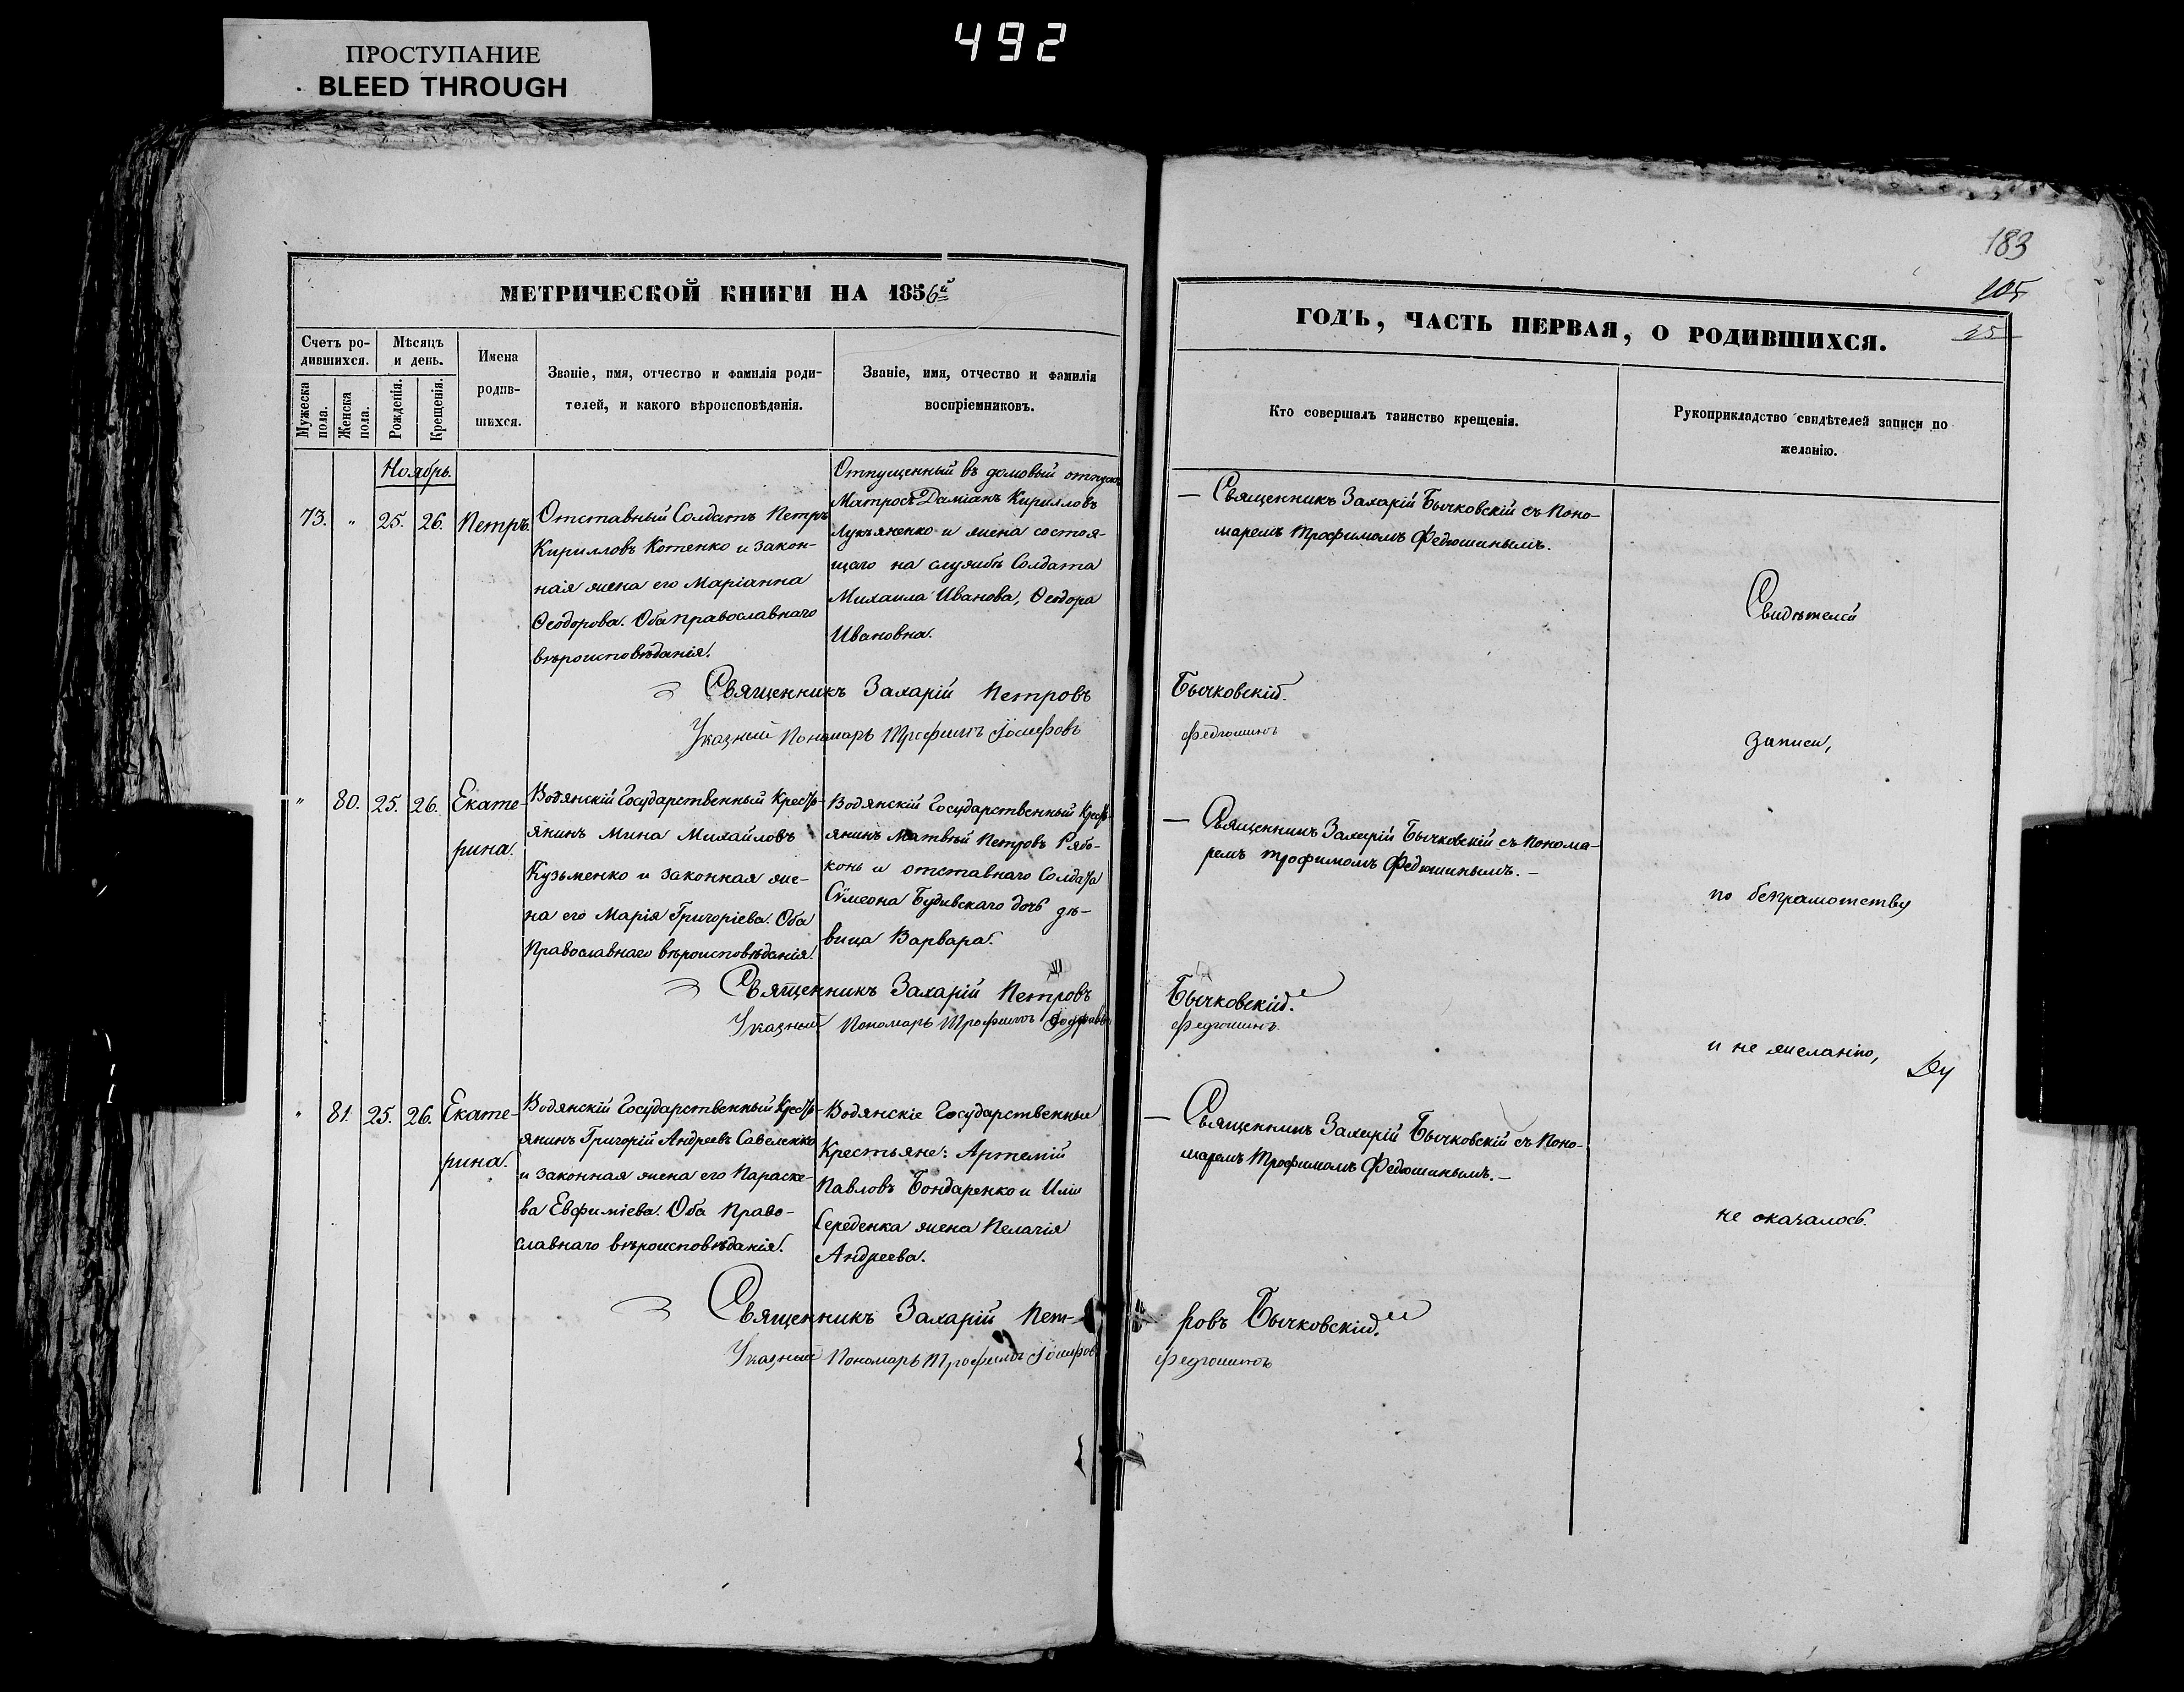 492
ПРОСТУПАНИЕ
BLEED THROUGH
183
105
25
МЕТРИЧЕСКОЙ КНИГИ НА 1856й
Счетъ ро-
дившихся.
Мужеска
пола.
Женска
пола.
Мѣсяцъ
и день.
Рожденія.
Крещенія.
Имена
родив-
шихся.
Званіе, имя, отчество и фамилія роди-
телей, и какого вѣроисповѣданія.
Званіе, имя, отчество и фамилія
воспріемниковъ.
ГОДЪ, ЧАСТЬ ПЕРВАЯ, О РОДИВШИХСЯ.
Кто совершалъ таинство крещенія.
Рукоприкладство свидѣтелей записи по
желанію.
Ноябрь.
73. " 25. 26. Петръ.
Отставный Солдатъ Петръ
Кирилловъ Котенко и закон-
ная жена его Маріанна
Ѳеодорова. Оба православнаго
вѣроисповѣданія.
Отпущенный въ домовый отпускъ
Матросъ Даміанъ Кирилловъ
Лукьяненко и жена состоя-
щаго на службѣ Солдата
Михаила Иванова, Ѳеодора
Ивановна.
— Священникъ Захарій Бычковскій съ Поно-
маремъ Трофимомъ Федюшинымъ.
Свидѣтелей
Священникъ Захарій Петровъ Бычковскій.
Указный Пономарь Трофимъ Іосифовъ Федюшинъ
записи,
" 80. 25. 26. Екате-
рина.
Водянскій Государственный Кресть-
янинъ Мина Михайловъ
Кузьменко и законная же-
на его Марія Григоріева. Оба
Православнаго вѣроисповѣданія.
Водянскій Государственный Кресть-
янинъ Матвѣй Петровъ Рябо-
конь и отставнаго Солдата
Сѵмеона Будивскаго дочь дѣ-
вица Варвара.
— Священникъ Захарій Бычковскій съ Понома-
ремъ Трофимомъ Федюшинымъ. —
по безграмотству
Священникъ Захарій Петровъ Бычковскій.
Указный Пономарь Трофимъ Федюшинъ.
и не желанію,
" 81. 25. 26. Екате-
рина.
Водянскій Государственный Кресть-
янинъ Григорій Андреевъ Савеленко
и законная жена его Параске-
ва Евфиміева. Оба Право-
славнаго вѣроисповѣданія.
Водянскіе Государственные
Крестьяне: Артемій
Павловъ Бондаренко и Иліи
Середенка жена Пелагія
Андреева.
— Священникъ Захарій Бычковскій съ Поно-
маремъ Трофимомъ Федюшинымъ. —
не оказалось.
Священникъ Захарій Пет- ровъ Бычковскій.
Указный Пономарь Трофимъ Іосифовъ Федюшинъ